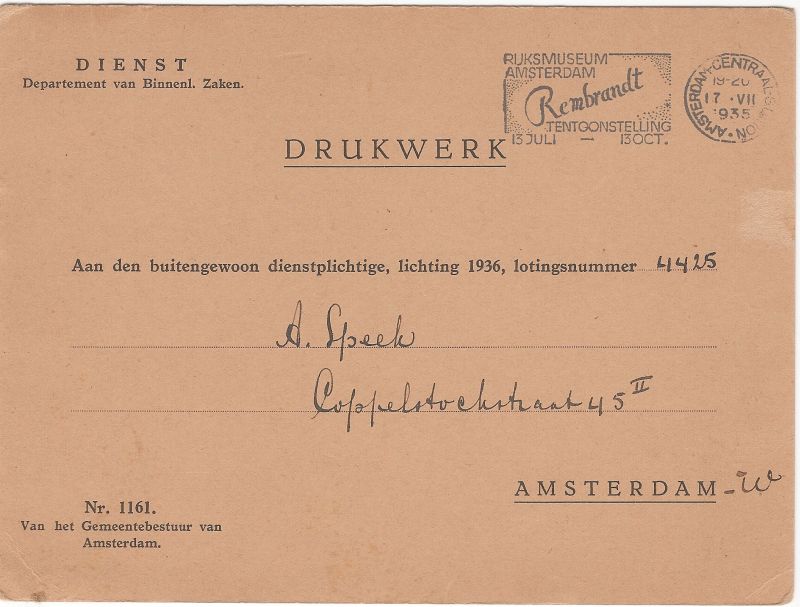 DIENST
Departement van Binnenl. Zaken.
RIJKSMUSEUM
AMSTERDAM
Rembrandt
TENTOONSTELLING
13 JULI — 13 OCT.
AMSTERDAM-CENTRAAL STATION
19-20
17 · VII
1935
DRUKWERK
Aan den buitengewoon dienstplichtige, lichting 1936, lotingsnummer 4425
A. Speek
Coppelstockstraat 45 II
AMSTERDAM-W
Nr. 1161.
Van het Gemeentebestuur van
Amsterdam.